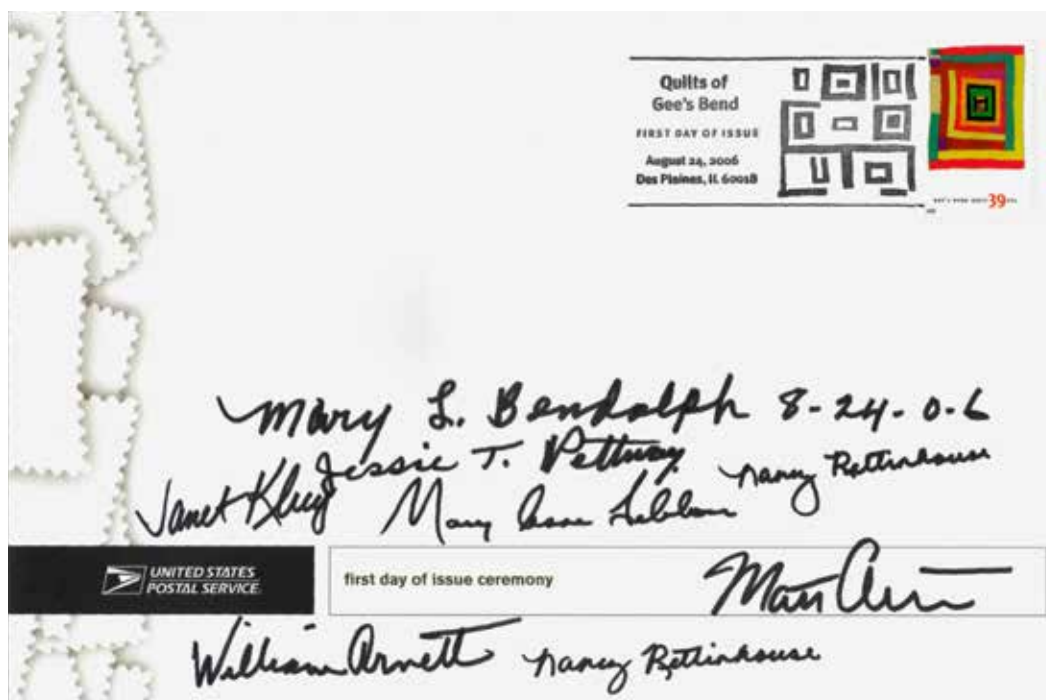 Quilts of
Gee's Bend
FIRST DAY OF ISSUE
August 24, 2006
Des Plaines, IL 60018
39
Mary L. Bendolph 8-24-0-6
Jessie T. Pettway
Nancy Rettinhouse
Janet Klug Mary Anne
UNITED STATES
POSTAL SERVICE
first day of issue ceremony
Matt Arnett
William Arnett Nancy Rettinhouse